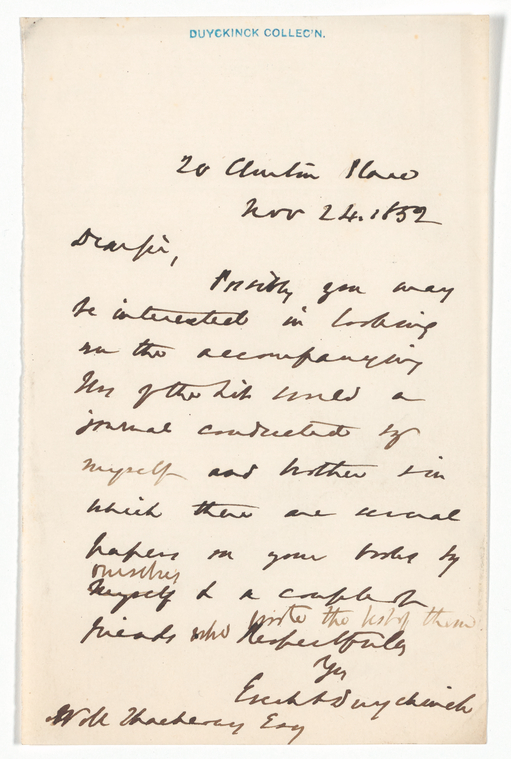 DUYCKINCK COLLEC'N.
20 Clinton Place
Nov 24. 1852
Dear Sir,
Possibly you may
be interested in looking
on the accompanying
Nos of the Lit World a
journal conducted by
myself and brother & in
which there are several
papers on your books by
ourselves
myself & a couple of
wrote the best of them
friends who Respectfully
Yrs
Evert A Duyckinck
Wm Thackeray Esq